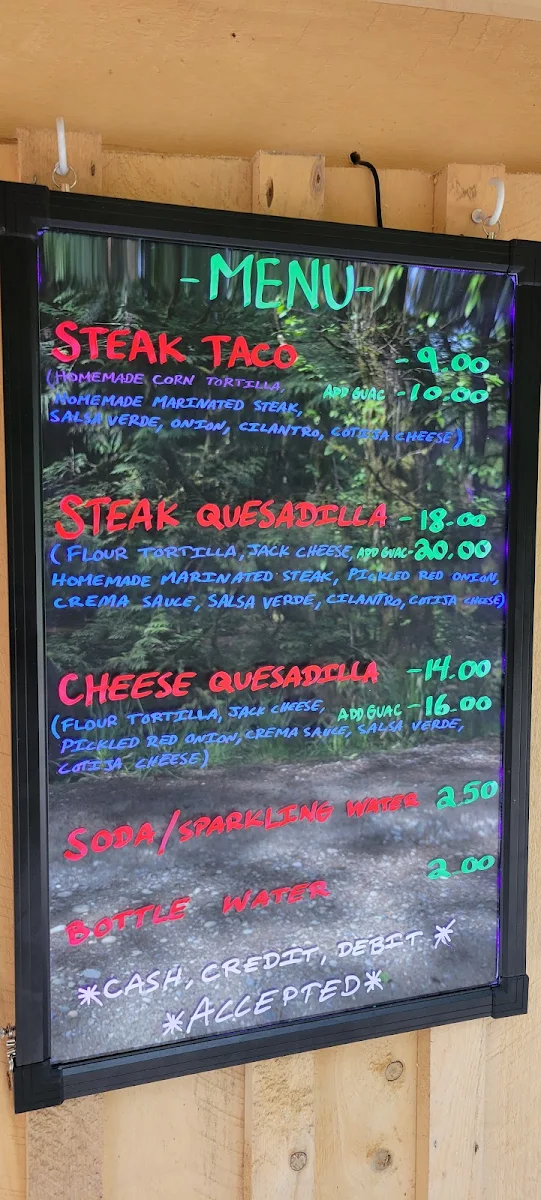 -MENU-
STEAK TACO -9.00
(HOMEMADE CORN TORTILLA, ADD GUAC -10.00
HOMEMADE MARINATED STEAK,
SALSA VERDE, ONION, CILANTRO, COTIJA CHEESE)
STEAK QUESADILLA -18.00
(FLOUR TORTILLA, JACK CHEESE, ADD GUAC-20.00
HOMEMADE MARINATED STEAK, PICKLED RED ONION,
CREMA SAUCE, SALSA VERDE, CILANTRO, COTIJA CHEESE)
CHEESE QUESADILLA -14.00
(FLOUR TORTILLA, JACK CHEESE, ADD GUAC -16.00
PICKLED RED ONION, CREMA SAUCE, SALSA VERDE,
COTIJA CHEESE)
SODA/SPARKLING WATER 2.50
BOTTLE WATER 2.00
*CASH, CREDIT, DEBIT *
*ACCEPTED*